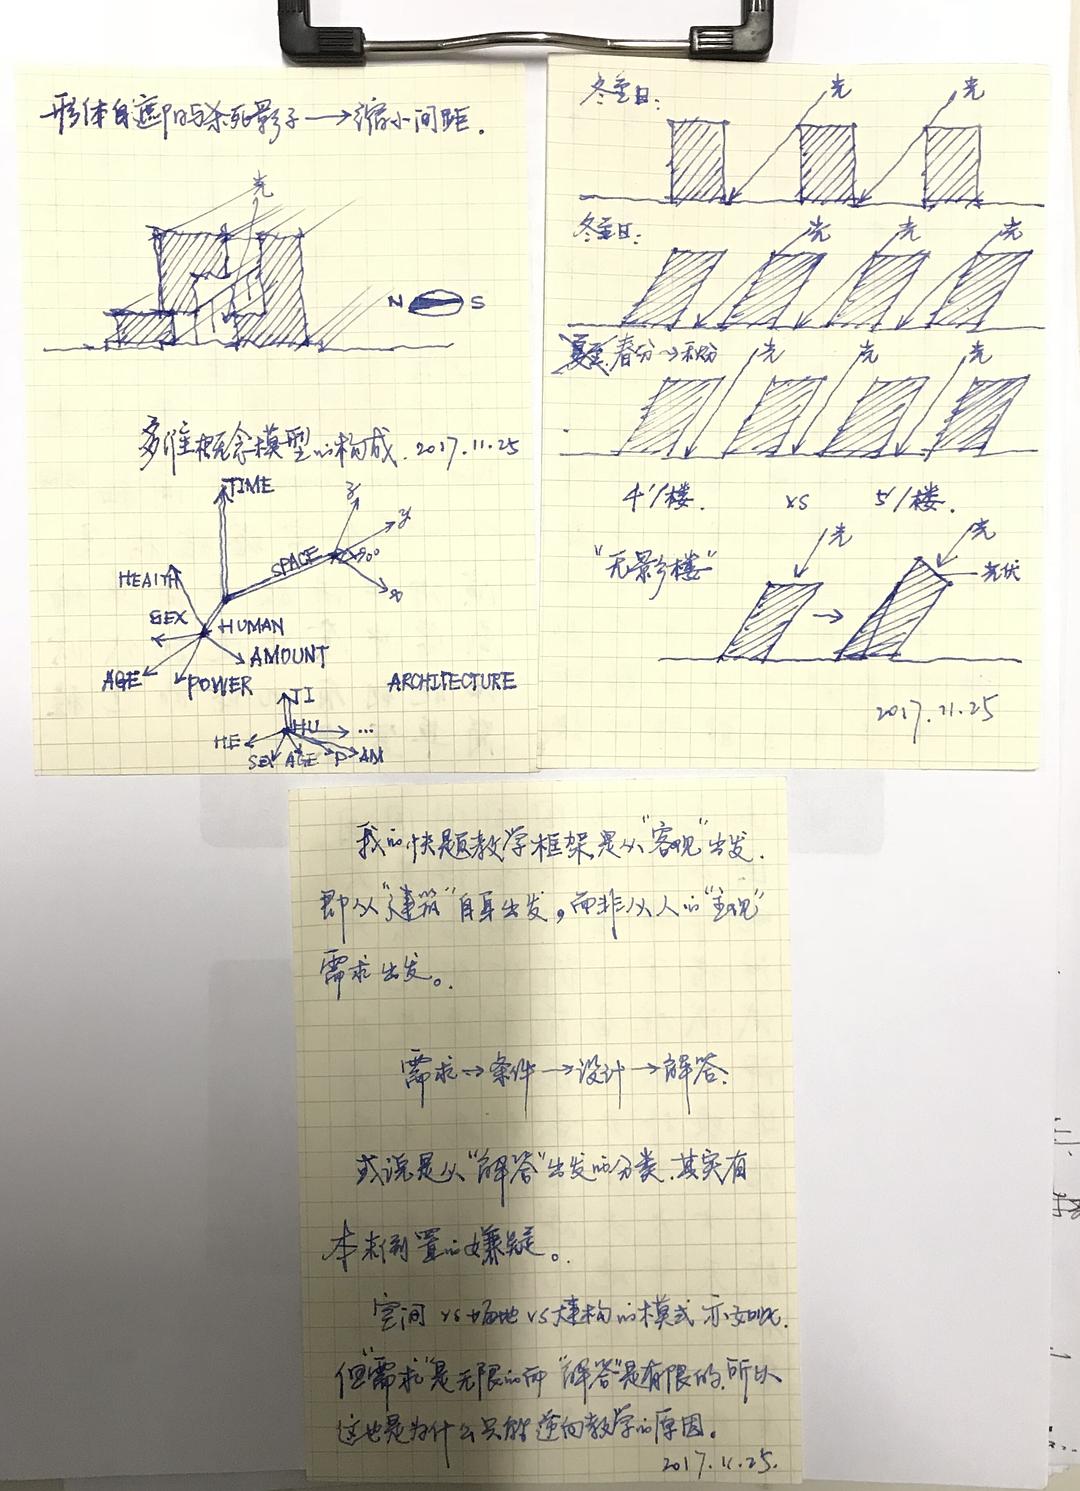 形体自遮阳与杀死影子→缩小间距.
光
N S
多维概念模型的构成. 2017.11.25
TIME
z
y
SPACE
90°
x
HEALTH
SEX
HUMAN
AMOUNT
AGE
POWER
ARCHITECTURE
TI
HU
...
HE
SEX AGE P AM
冬至日:
光 光
冬至日:
光 光 光
夏至. 春分→秋分
光 光 光
4'/楼. vs 5'/楼.
"无影楼"
光 光
光伏
2017.11.25
我的快题教学框架是从"客观"出发.
即从"建筑"自身出发,而非从人的"主观"
需求出发。
需求→条件→设计→解答.
或说是从"解答"出发的分类.其实有
本末倒置的嫌疑。
空间 vs 场地 vs 建构的模式亦如此.
但"需求"是无限的而"解答"是有限的,所以
这也是为什么只能逆向教学的原因。
2017.11.25.